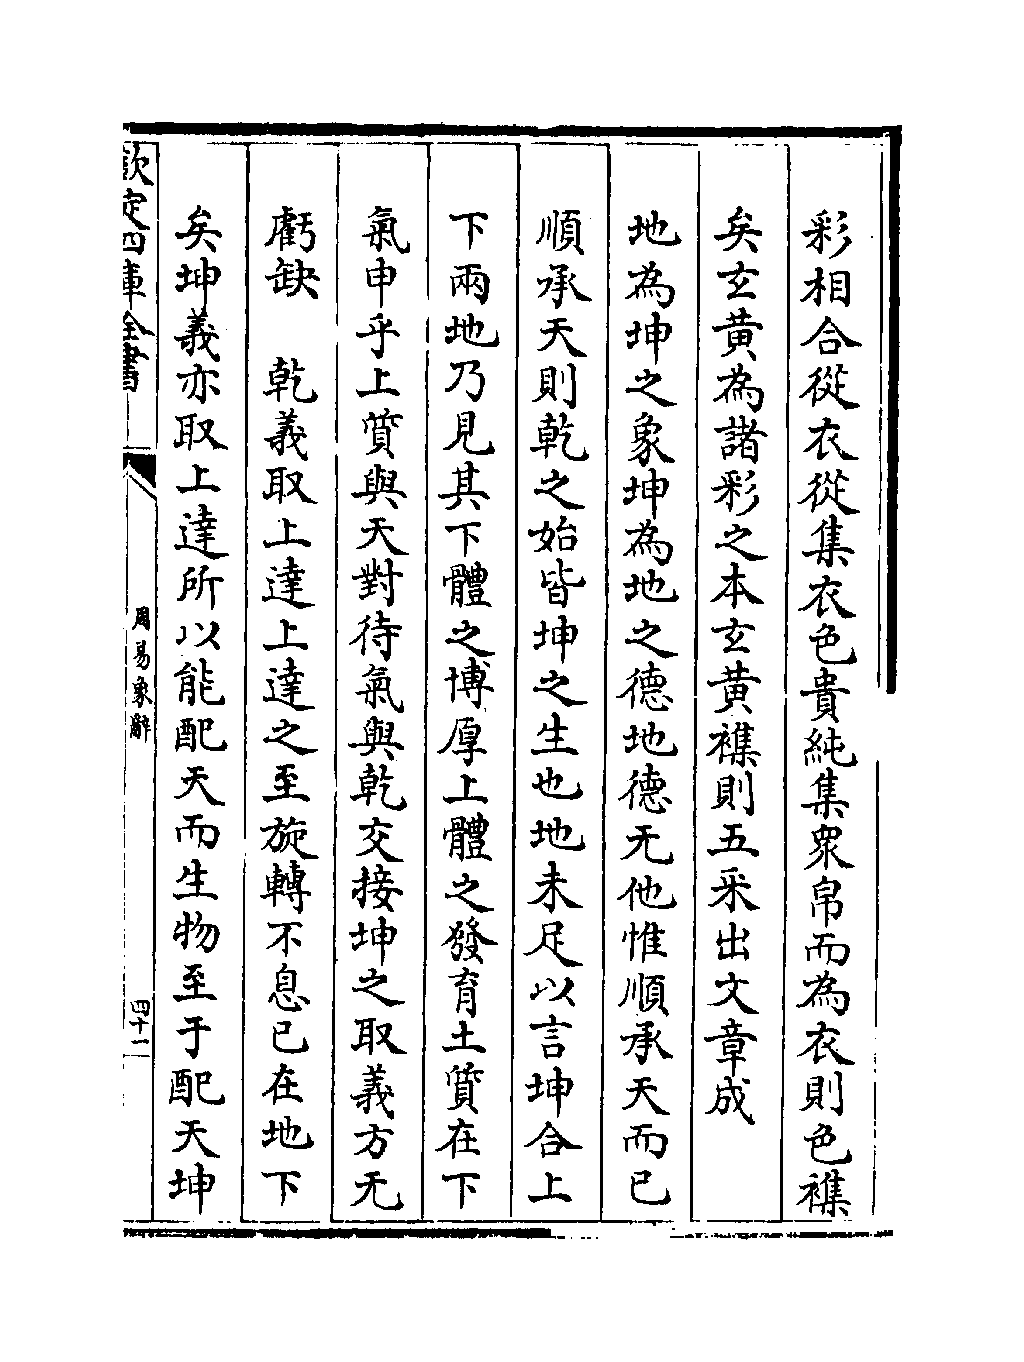 彩相合從衣從集衣色貴純集衆帛而為衣則色襍
矣玄黄為諸彩之本玄黄襍則五采出文章成
地為坤之象坤為地之德地德无他惟順承天而已
順承天則乾之始皆坤之生也地未足以言坤合上
下兩地乃見其下體之博厚上體之發育土質在下
氣申乎上質與天對待氣與乾交接坤之取義方无
虧缺　乾義取上達上達之至旋轉不息已在地下
矣坤義亦取上達所以能配天而生物至于配天坤
欽定四庫全書
周易象辭
四十二